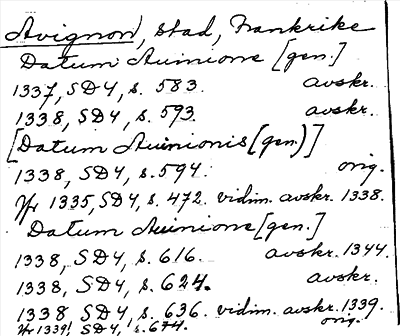 Avignon, stad, Frankrike
Datum Auinione [gen.]
1337, SD4, s. 583. avskr.
1338, SD4, s. 593. avskr.
[Datum Auinionis (gen.)]
1338, SD4, s. 594. orig.
Jfr 1335, SD4, s. 472. vidim. avskr. 1338.
Datum Auinione [gen.]
1338, SD4, s. 616. avskr. 1344.
1338, SD4, s. 624. avskr.
1338, SD4, s. 636. vidim. avskr. 1339.
Jfr 1339! SD4, s. 674. orig.